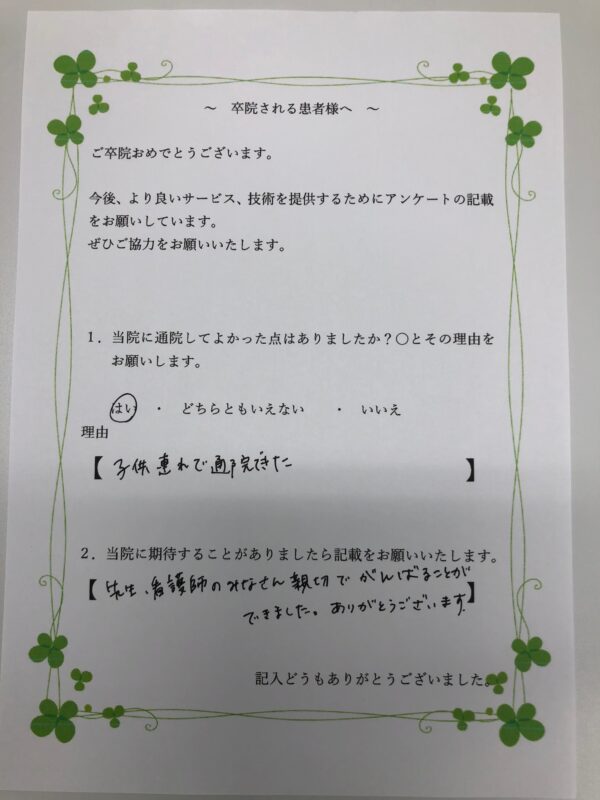 ～ 卒院される患者様へ ～
ご卒院おめでとうございます。
今後、より良いサービス、技術を提供するためにアンケートの記載
をお願いしています。
ぜひご協力をお願いいたします。
１．当院に通院してよかった点はありましたか？〇とその理由を
お願いします。
はい ・ どちらともいえない ・ いいえ
理由
【 子供連れで通院できた 】
２．当院に期待することがありましたら記載をお願いいたします。
【 先生、看護師のみなさん親切で がんばることが 】
できました。ありがとうございます
記入どうもありがとうございました。